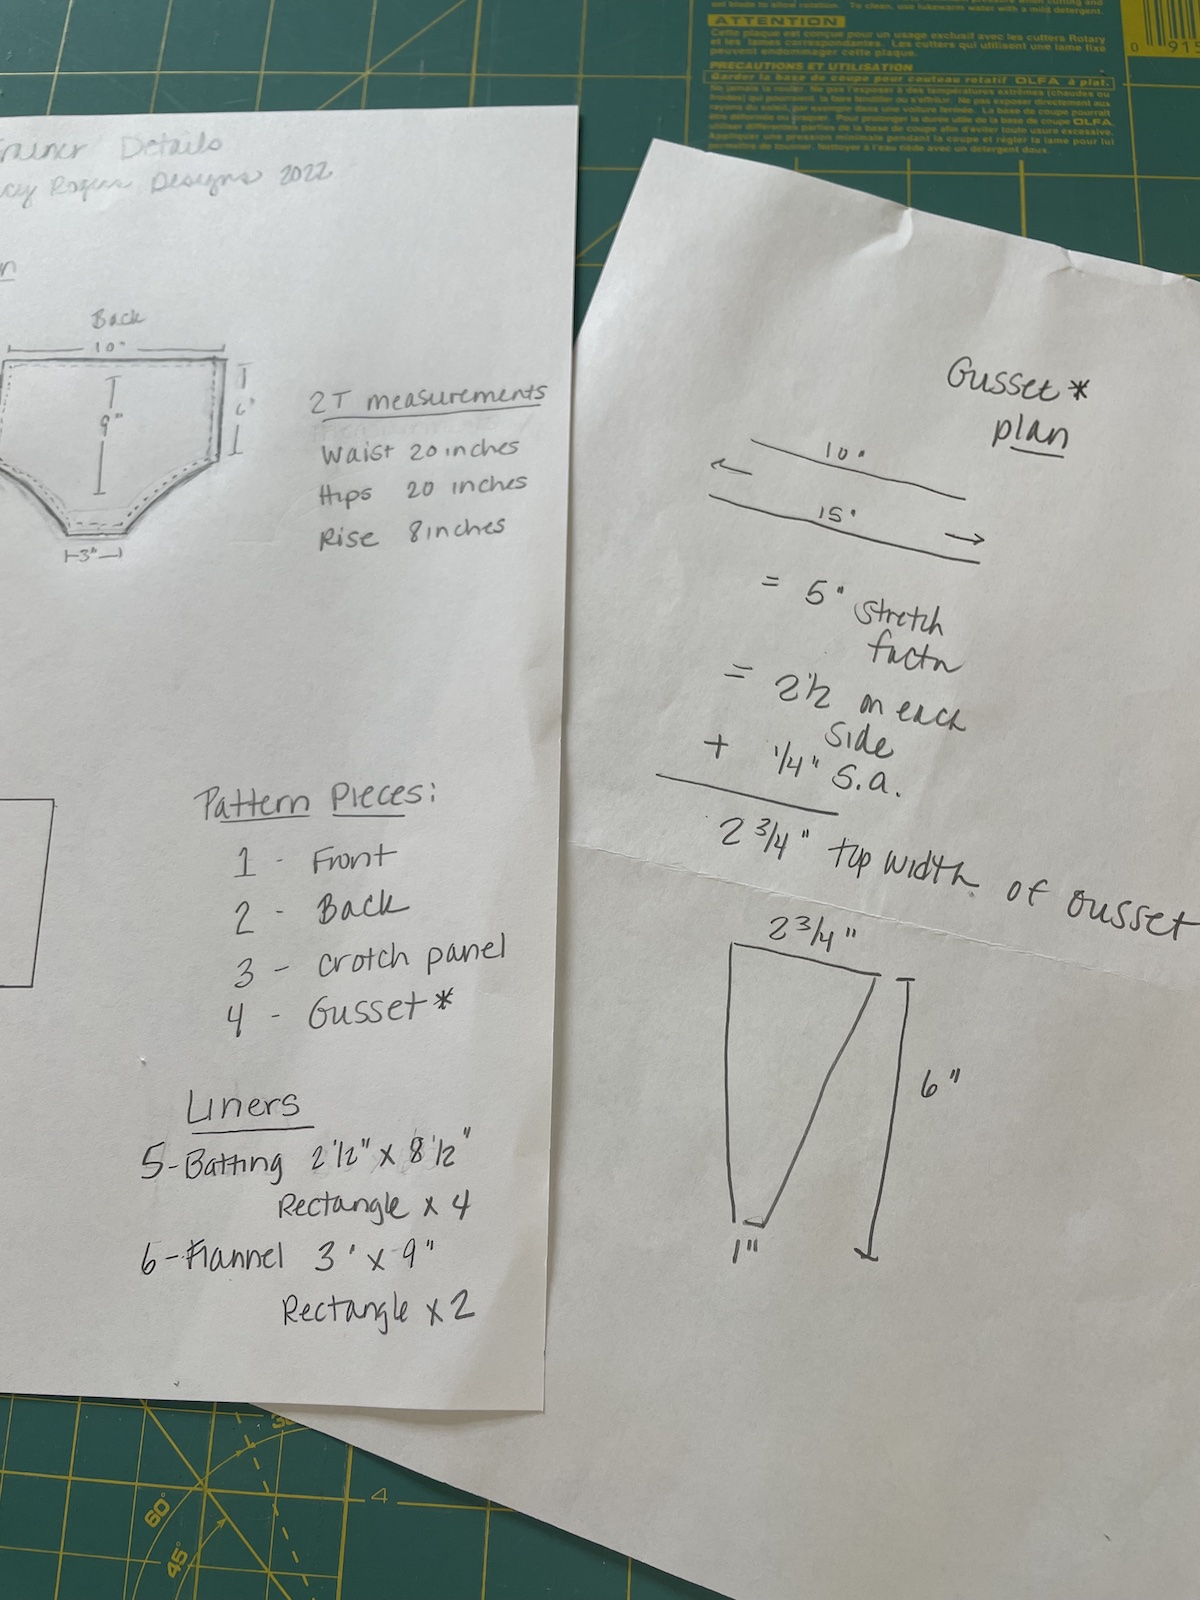 set blade to allow rotation. To clean, use lukewarm water with a mild detergent.
ATTENTION
Cette plaque est conçue pour un usage exclusif avec les cutters Rotary
et les lames correspondantes. Les cutters qui utilisent une lame fixe
peuvent endommager cette plaque.
PRECAUTIONS ET UTILISATION
Garder la base de coupe pour couteau rotatif OLFA à plat.
0 915
Trainer Details
Rogers Designs 2022
Back
10"
9"
6"
3"
2T measurements
Waist 20 inches
Hips 20 inches
Rise 8 inches
Pattern Pieces:
1 - Front
2 - Back
3 - Crotch panel
4 - Gusset*
Liners
5-Batting 2 1/2" x 8 1/2"
Rectangle x 4
6-Flannel 3" x 9"
Rectangle x 2
Gusset*
plan
10"
15"
= 5" stretch
factor
= 2 1/2 on each
side
+ 1/4" s.a.
2 3/4" top width of Gusset
2 3/4"
6"
1"
4
60°
45°